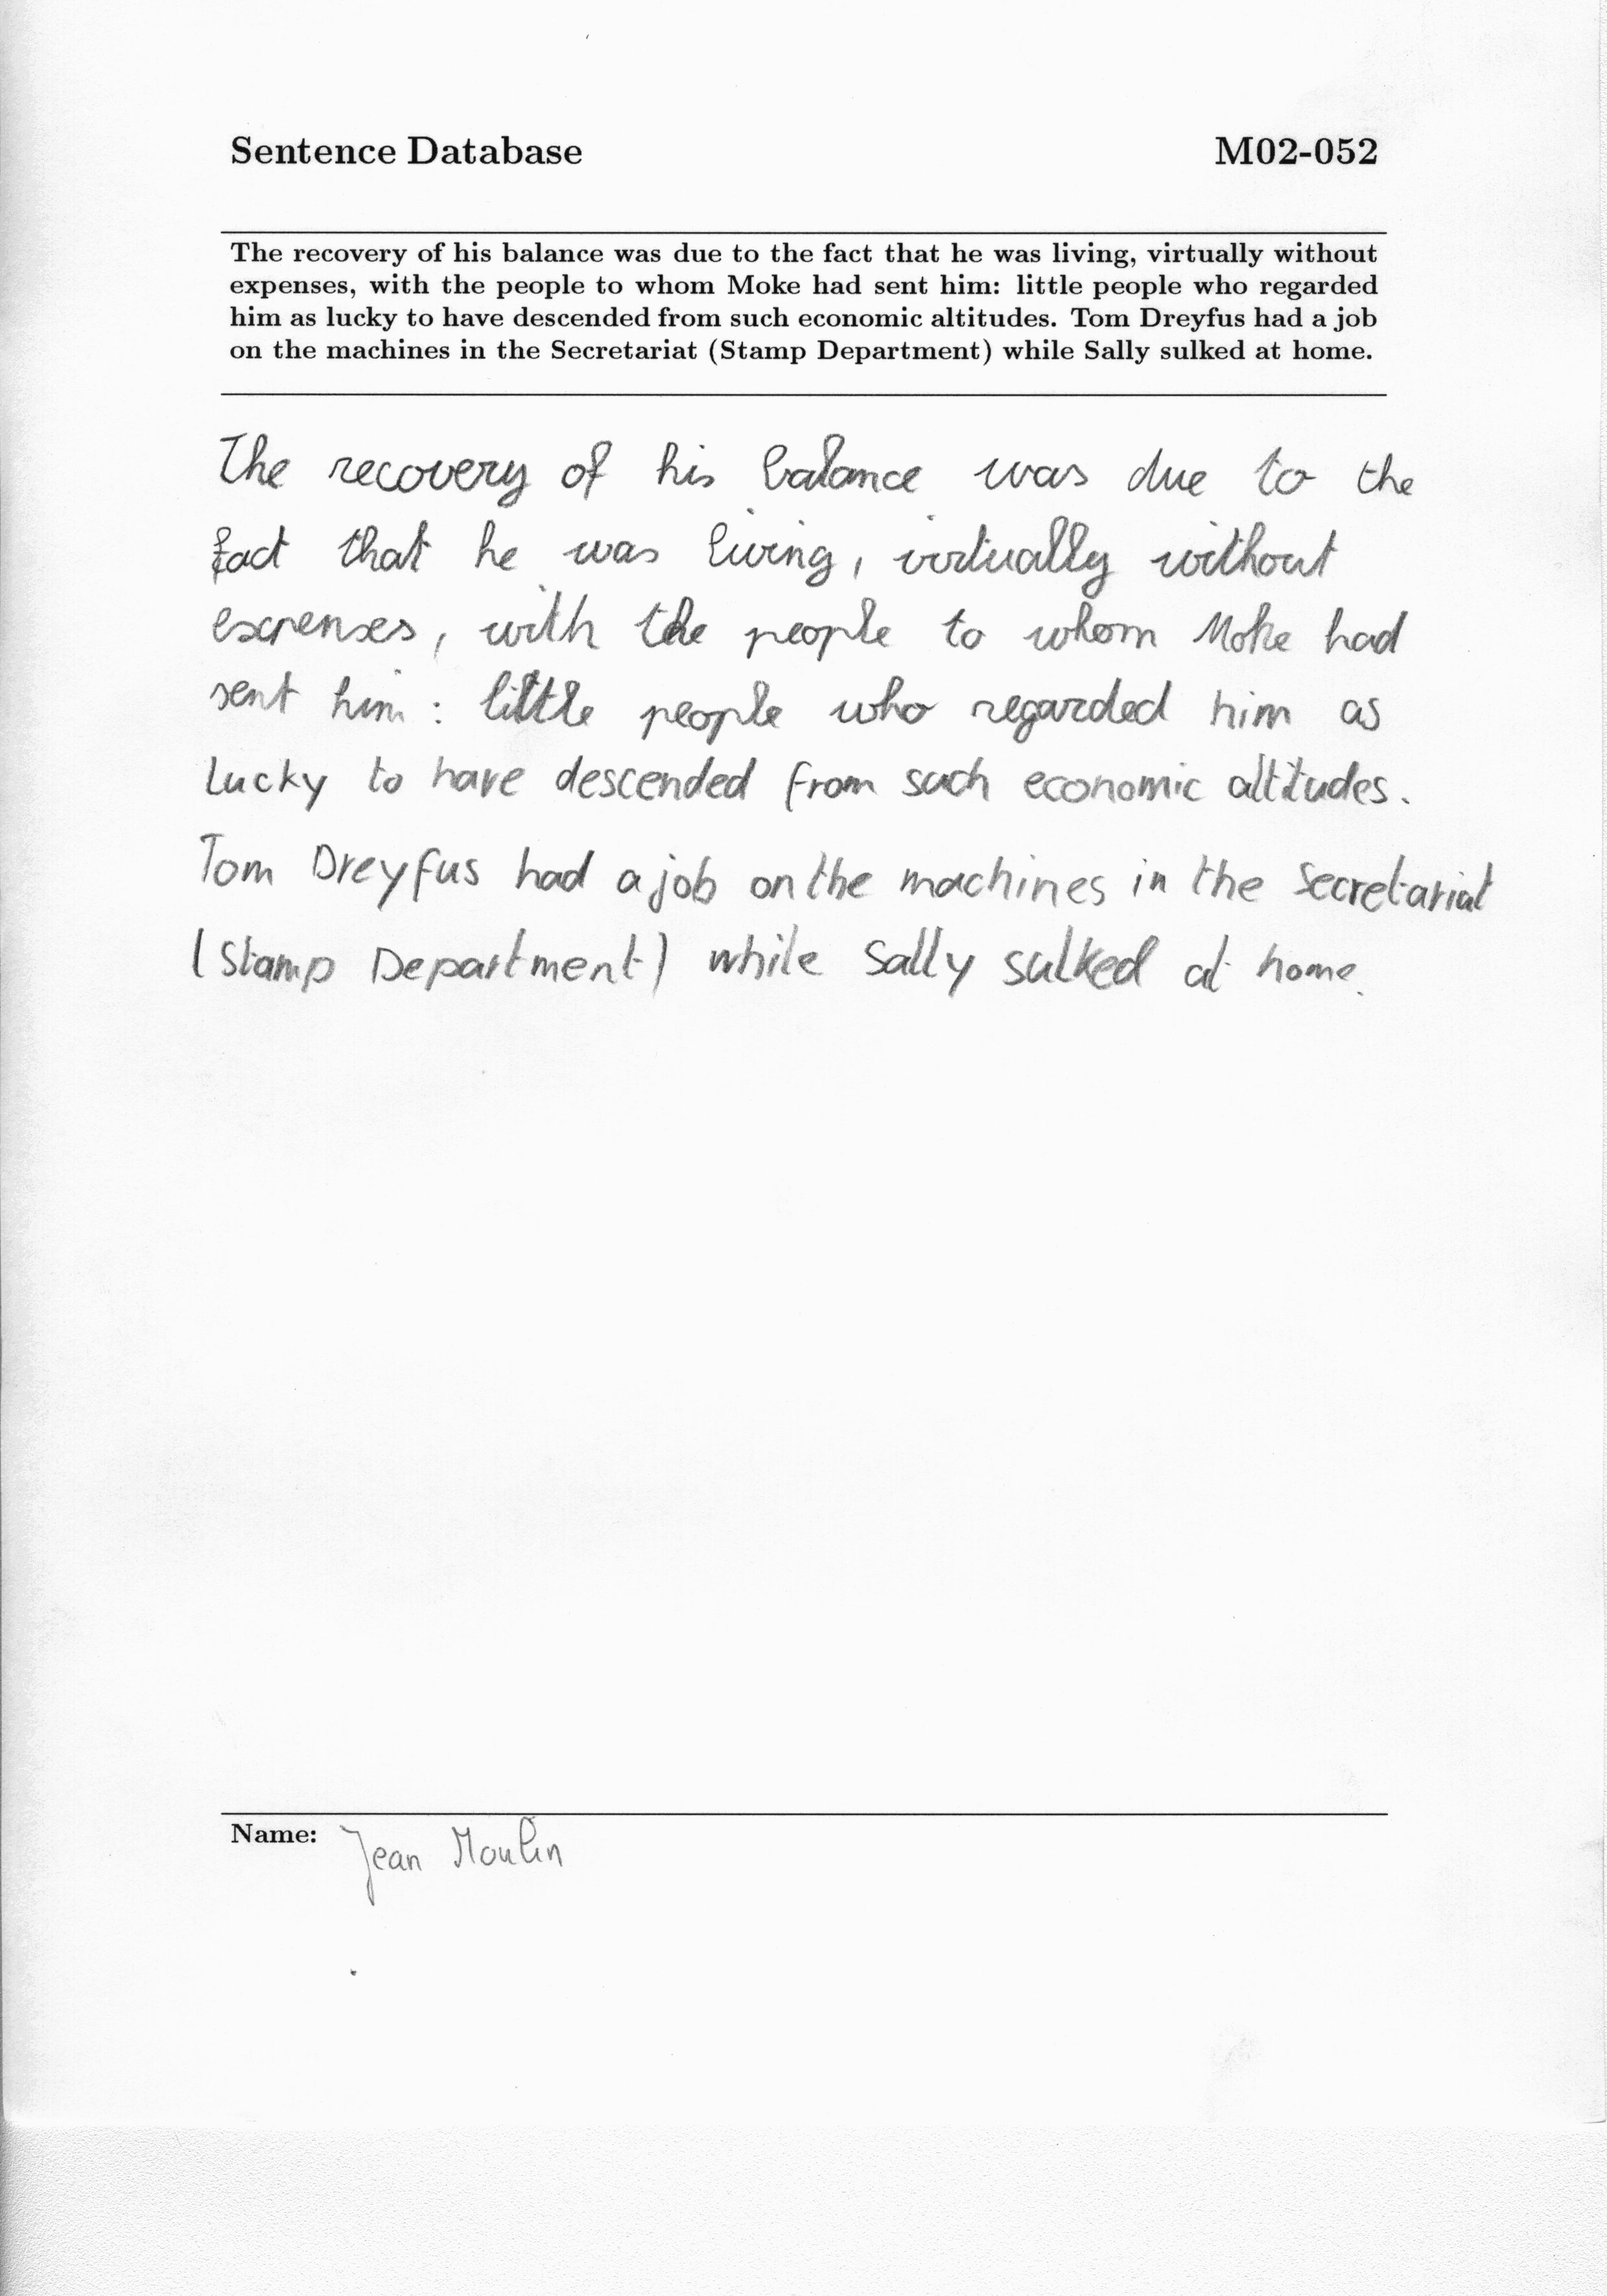 Sentence Database M02-052
The recovery of his balance was due to the fact that he was living, virtually without
expenses, with the people to whom Moke had sent him: little people who regarded
him as lucky to have descended from such economic altitudes. Tom Dreyfus had a job
on the machines in the Secretariat (Stamp Department) while Sally sulked at home.
The recovery of his balance was due to the
fact that he was living, virtually without
expenses, with the people to whom Moke had
sent him: little people who regarded him as
lucky to have descended from such economic altitudes.
Tom Dreyfus had a job on the machines in the Secretariat
(Stamp Department) while Sally sulked at home.
Name: Jean Moulin